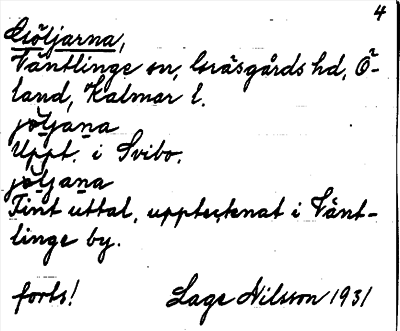 4
Ljöljarna,
Väntlinge sn, Gräsgårds hd, Ö-
land, Kalmar l.
jöljana
Uppt. i Svibo.
jöljana
Fint uttal, upptecknat i Vänt-
linge by.
forts! Lage Nilsson 1931